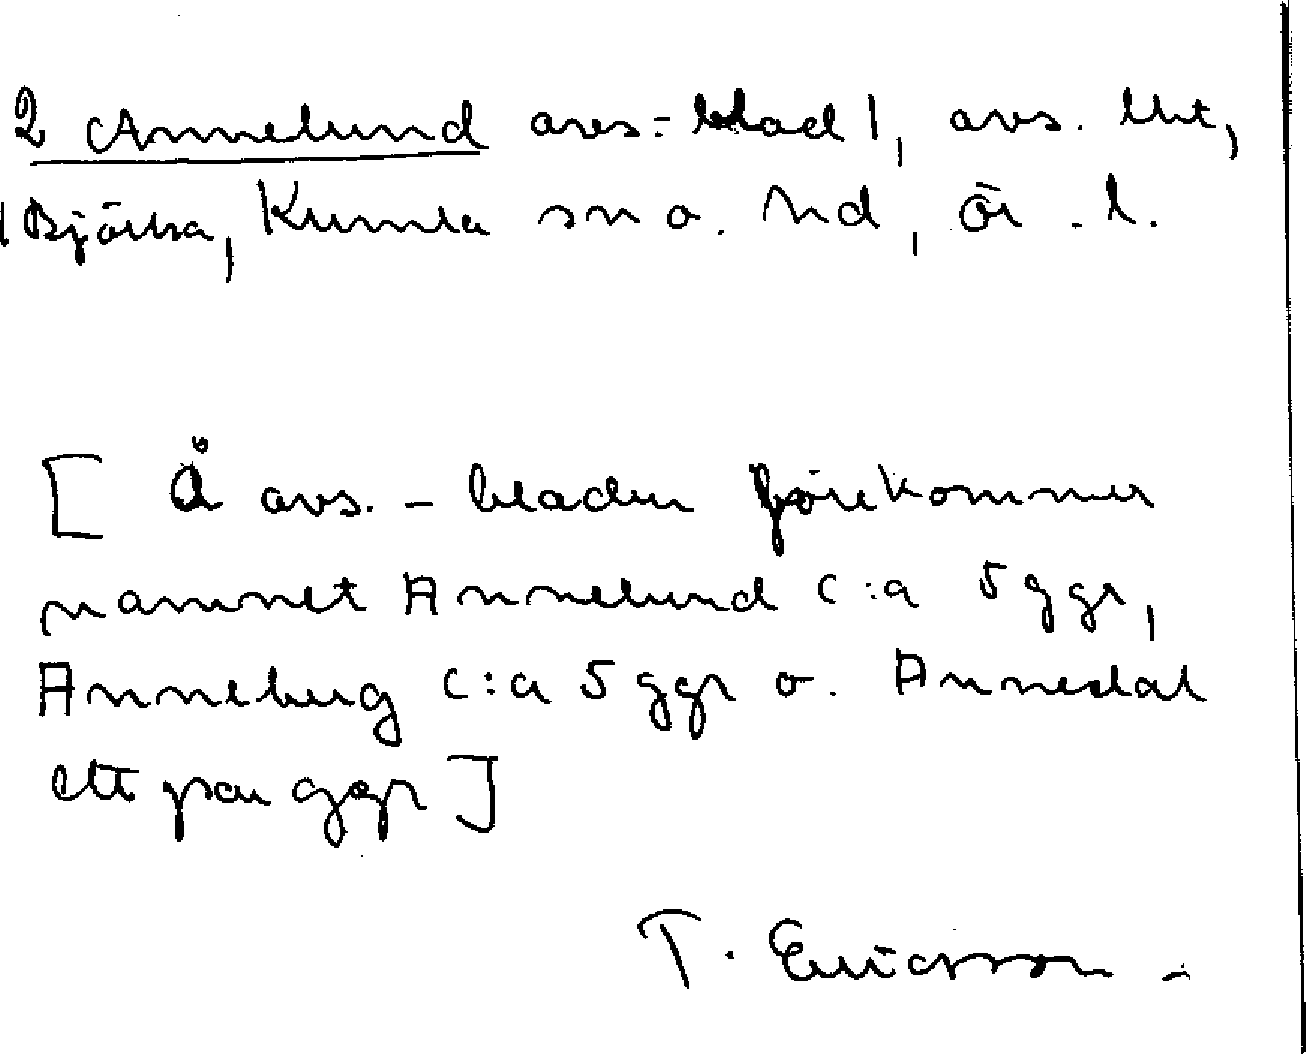 2 Annelund avs.-blad 1, avs. lht,
Björka, Kumla sn o. hd, Ör. l.
[ Å avs.-bladen förekommer
namnet Annelund c:a 5 ggr,
Anneberg c:a 5 ggr o. Annedal
ett par ggr ]
T. Ericsson